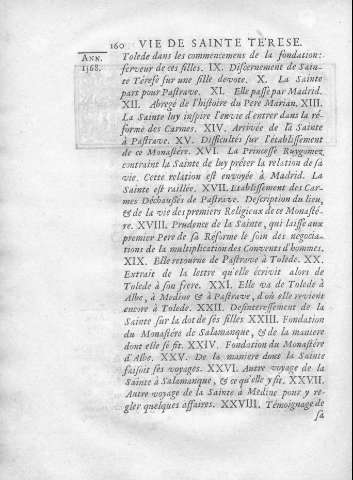 160 VIE DE SAINTE TERESE.
ANN. Tolede dans les commencemens de la fondation:
1568. ferveur de ces filles. IX. Discernement de Sain-
te Terese sur une fille devote. X. La Sainte
part pour Pastrave. XI. Elle passe par Madrid.
XII. Abregé de l'histoire du Pere Marian. XIII.
La Sainte luy inspire l'envie d'entrer dans la ré-
forme des Carmes. XIV. Arrivée de la Sainte
à Pastrave. XV. Difficultés sur l'établissement
de ce Monastére. XVI. La Princesse Ruygomez
contraint la Sainte de luy préter la relation de sa
vie. Cette relation est envoyée à Madrid. La
Sainte est raillée. XVII. Etablissement des Car-
mes Déchaussés de Pastrave. Description du lieu,
& de la vie des premiers Religieux de ce Monasté-
re. XVIII. Prudence de la Sainte, qui laisse aux
premier Pere de sa Réforme le soin des negocia-
tions de la multiplication des Convents d'hommes.
XIX. Elle retourne de Pastrave à Tolede. XX.
Extrait de la lettre qu'elle écrivit alors de
Tolede à son frere. XXI. Elle va de Tolede à
Albe, à Medine & à Pastrave, d'où elle revient
encore à Tolede. XXII. Desinteressement de la
Sainte sur la dot de ses filles XXIII. Fondation
du Monastére de Salamanque, & de la maniere
dont elle se fit. XXIV. Fondation du Monastére
d'Albe. XXV. De la maniere dont la Sainte
faisoit ses voyages. XXVI. Autre voyage de la
Sainte à Salamanque, & ce qu'elle y fit. XXVII.
Autre voyage de la Sainte à Medine pour y re-
gler quelques affaires. XXVIII. Témoignage de
sa